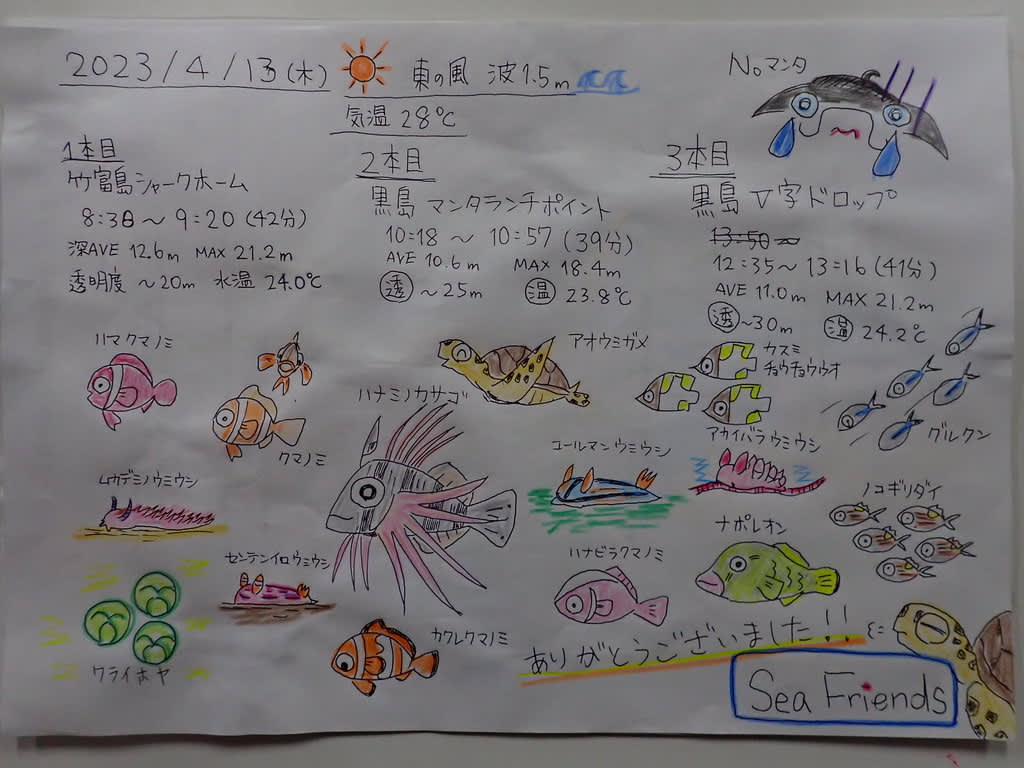 2023/4/13(木) 東の風 波1.5m
気温 28℃
Noマンタ
1本目
竹富島シャークホーム
8:38～9:20(42分)
深AVE 12.6m MAX 21.2m
透明度 ～20m 水温 24.0℃
2本目
黒島 マンタランチポイント
10:18 ～ 10:57(39分)
AVE 10.6m MAX 18.4m
透 ～25m 温 23.8℃
3本目
黒島 V字ドロップ
13:50～
12:35～13:16(41分)
AVE 11.0m MAX 21.2m
透 ～30m 温 24.2℃
ハマクマノミ
クマノミ
ハナミノカサゴ
アオウミガメ
カスミ
チョウチョウウオ
グルクン
ムカデミノウミウシ
ゼンテンイロウミウシ
コールマンウミウシ
アカイバラウミウシ
ノコギリダイ
ナポレオン
ハナビラクマノミ
カクレクマノミ
クライホヤ
ありがとうございました!!
Sea Friends